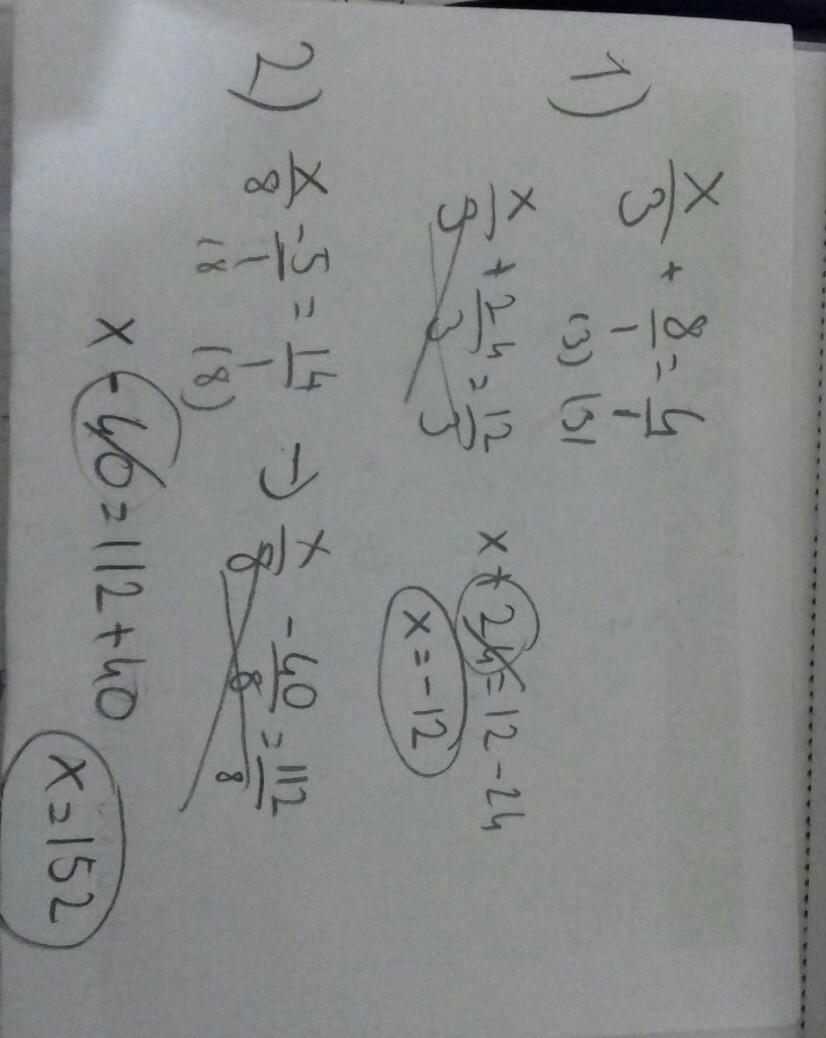 1) x/3 + 8/1 = 4/1
(3) (3)
x/3 + 24/3 = 12/3
x + 24 = 12 - 24
x = -12
2) x/8 - 5/1 = 14/1 → x/8 - 40/8 = 112/8
(8 (8)
x - 40 = 112 + 40
x = 152